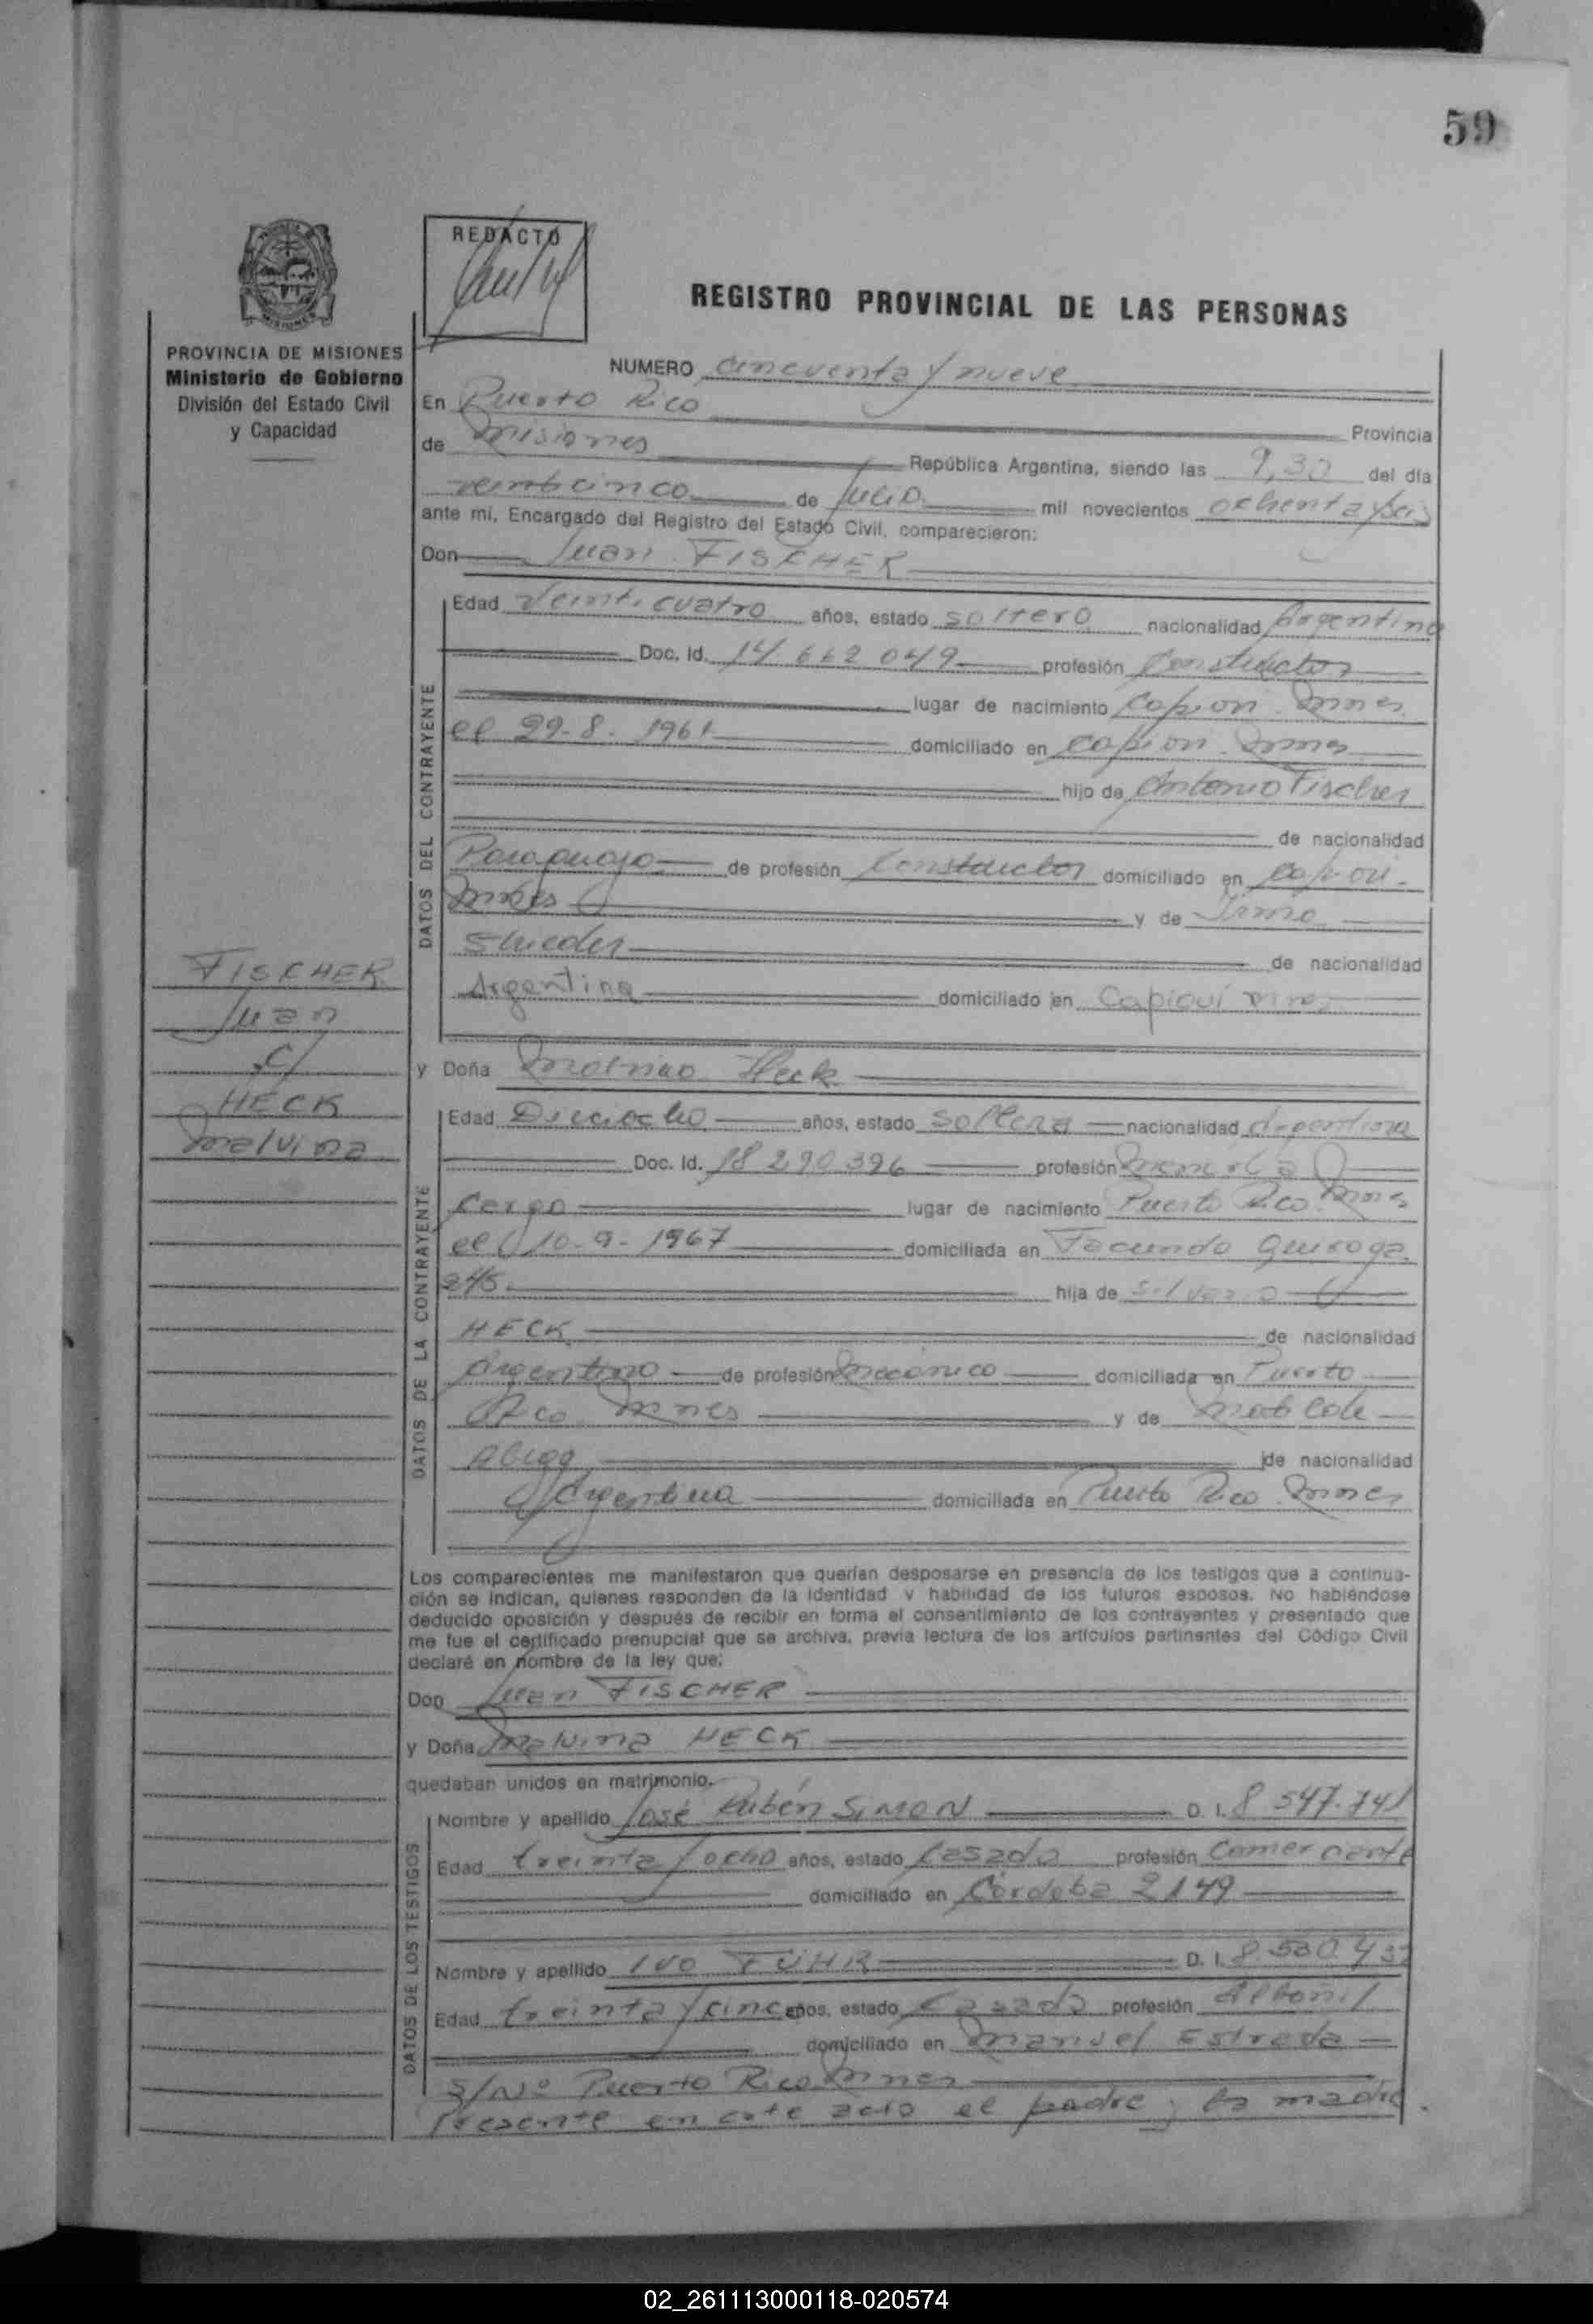 59
REDACTO
REGISTRO PROVINCIAL DE LAS PERSONAS
MISIONES
PROVINCIA DE MISIONES
Ministerio de Gobierno
División del Estado Civil
y Capacidad
NUMERO cincuenta y nueve
En Puerto Rico
Provincia
de Misiones República Argentina, siendo las 9,30 del día
veinticinco de Julio mil novecientos ochenta y seis
ante mi, Encargado del Registro del Estado Civil, comparecieron:
Don Juan FISCHER
DATOS DEL CONTRAYENTE
Edad Veinticuatro años, estado soltero nacionalidad Argentino
Doc. Id. 14.662 049 profesión Constructor
lugar de nacimiento Capioví Mnes
el 29-8-1961 domiciliado en Capioví Mnes
hijo de Antonio Fischer
de nacionalidad
Paraguayo de profesión Constructor domiciliado en Capioví
Mnes y de Irma
de nacionalidad
Argentina domiciliado en Capioví Mnes
FISCHER
Juan
c/
HECK
Malvina
y Doña Malvina Heck
DATOS DE LA CONTRAYENTE
Edad Dieciocho años, estado soltera nacionalidad Argentina
Doc. Id. 18 290 396 profesión
lugar de nacimiento Puerto Rico Mnes
el 10-9-1967 domiciliada en Facundo Quiroga
245 hija de
HECK de nacionalidad
Argentino de profesión Mecánico domiciliada en Puerto
Rico Mnes y de
de nacionalidad
Argentina domiciliada en Puerto Rico Mnes
Los comparecientes me manifestaron que querían desposarse en presencia de los testigos que a continua-
ción se indican, quienes responden de la identidad y habilidad de los futuros esposos. No habiéndose
deducido oposición y después de recibir en forma el consentimiento de los contrayentes y presentado que
me fue el certificado prenupcial que se archiva, previa lectura de los artículos pertinentes del Código Civil
declaré en nombre de la ley que:
Don Juan FISCHER
y Doña Malvina HECK
quedaban unidos en matrimonio.
DATOS DE LOS TESTIGOS
Nombre y apellido José Rubén SIMON D. I. 8 547.741
Edad treinta y ocho años, estado casado profesión Comerciante
domiciliado en Córdoba 2149
Nombre y apellido IVO FÜHR D. I.
Edad treinta y cinc años, estado casado profesión Albañil
domiciliado en Manuel Estrada
S/Nº Puerto Rico Mnes
Presente en este acto el padre y la madre.
02_261113000118-020574